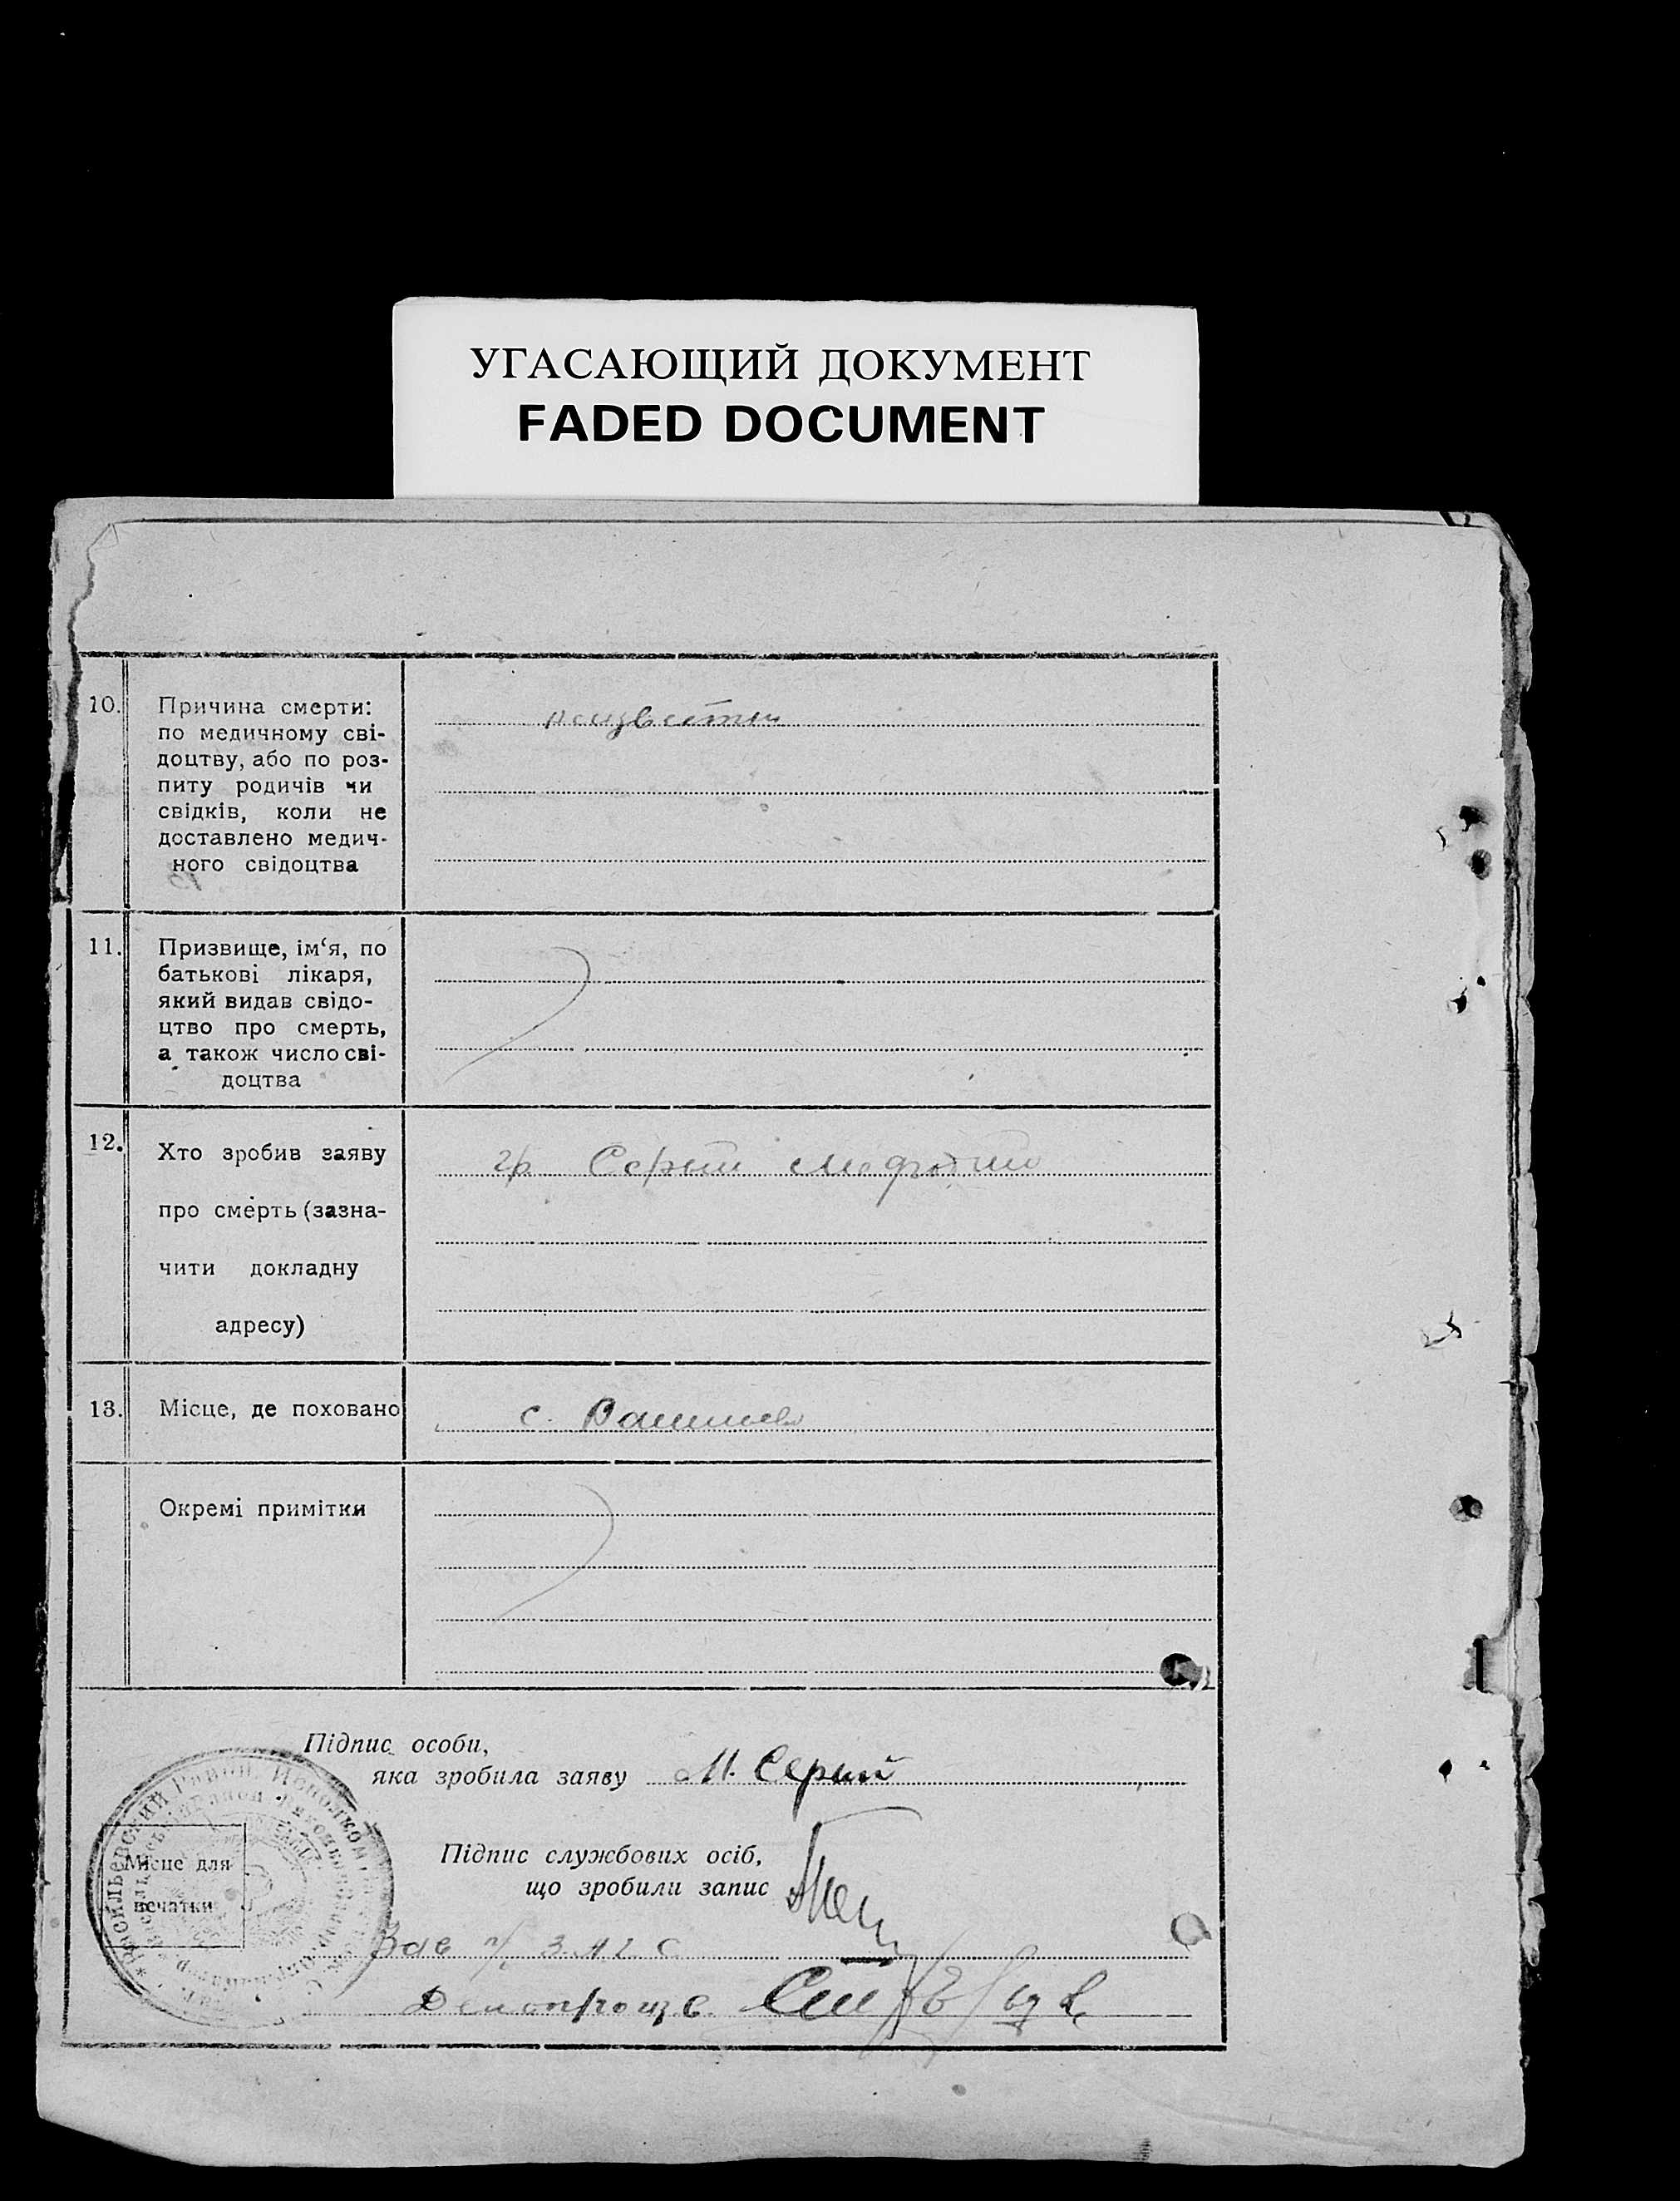 УГАСАЮЩИЙ ДОКУМЕНТ
FADED DOCUMENT
10.
Причина смерти:
по медичному сві-
доцтву, або по роз-
питу родичів чи
свідків, коли не
доставлено медич-
ного свідоцтва
11.
Призвище, ім‘я, по
батькові лікаря,
який видав свідо-
цтво про смерть,
а також число сві-
доцтва
12.
Хто зробив заяву
про смерть (зазна-
чити докладну
адресу)
гр Серый
13.
Місце, де поховано
с.
Окремі примітки
Підпис особи,
яка зробила заяву М. Серый
Підпис службових осіб,
що зробили запис
Місце для
печатки
Зав